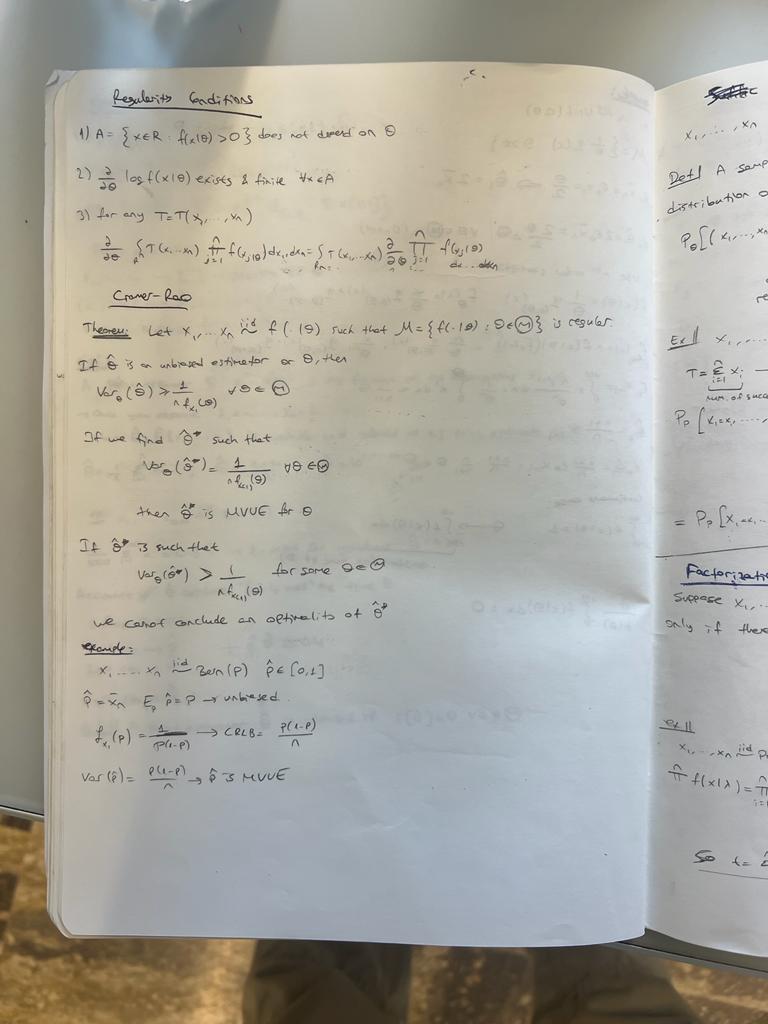 Regularity Conditions
1) A = {x∈R : f(x|θ) > 0} does not depend on θ
2) ∂/∂θ log f(x|θ) exists & finite ∀x∈A
3) for any T = T(x₁,...,xₙ)
∂/∂θ ∫ T(x₁...xₙ) ∏ⁿⱼ₌₁ f(xⱼ|θ) dx₁..dxₙ = ∫ T(x₁,...xₙ) ∂/∂θ ∏ⁿⱼ₌₁ f(xⱼ|θ) dx...dxₙ
Cramer-Rao
Theorem: Let x₁,...xₙ iid~ f(·|θ) such that M = {f(·|θ) : θ∈Θ} is regular.
If θ̂ is an unbiased estimator or θ, then
Var_θ(θ̂) ≥ 1/(n I_x₁(θ)) ∀θ∈Θ
If we find θ̂* such that
Var_θ(θ̂*) = 1/(n I_x₍₁₎(θ)) ∀θ∈Θ
then θ̂* is MVUE for θ
If θ̂* is such that
Var_θ(θ̂*) > 1/(n I_x₍₁₎(θ)) for some θ∈Θ
we cannot conclude an optimality of θ̂*
example:
x₁....xₙ iid~ Bern(p) p̂∈[0,1]
p̂ = x̄ₙ E_p p̂ = p → unbiased.
I_x₁(p) = 1/(p(1-p)) → CRLB = p(1-p)/n
Var(p̂) = p(1-p)/n → p̂ is MVUE
x₁,...,xₙ
Def| A
distribution
P_θ[(x₁,...,xₙ
Ex|| x₁,...
T = Σⁿᵢ₌₁ xᵢ
num. of
P_p[x₁=x₁,...
= P_p[x₁=x₁...
Suppose x₁,..
only if
ex||
x₁,...,xₙ iid~
∏ⁿ f(x|λ) = ∏ⁿᵢ₌₁
So t =